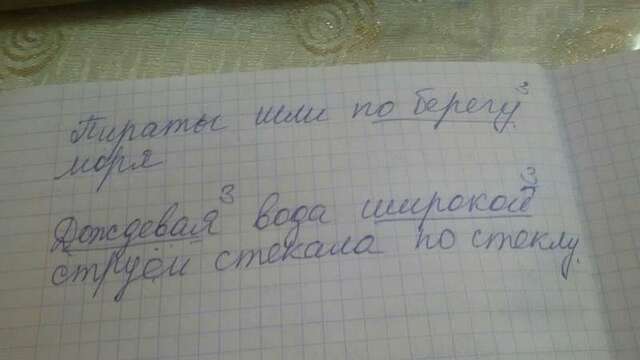 Пираты шли по берегу³
моря
Дождевая³ вода широкой³
струёй стекала по стеклу.